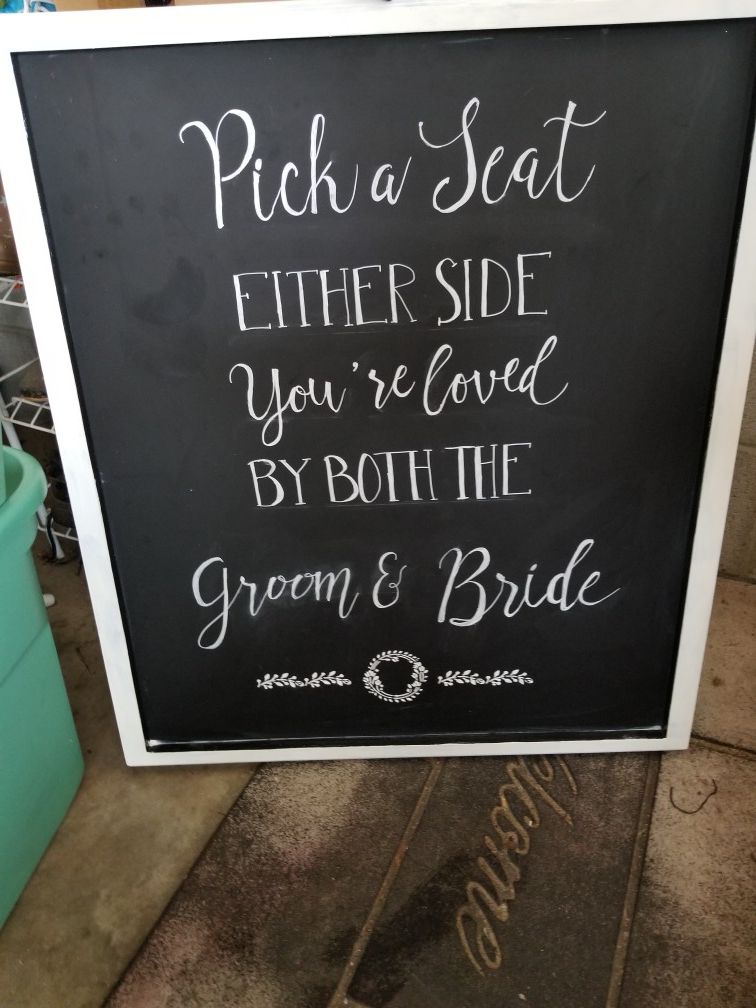 Pick a Seat
EITHER SIDE
You're loved
BY BOTH THE
Groom & Bride
Welcome